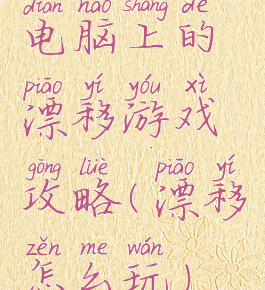 diàn nǎo shàng de
电脑上的
piāo yí yóu xì
漂移游戏
gōng lüè piāo yí
攻略(漂移
zěn me wán
怎么玩)